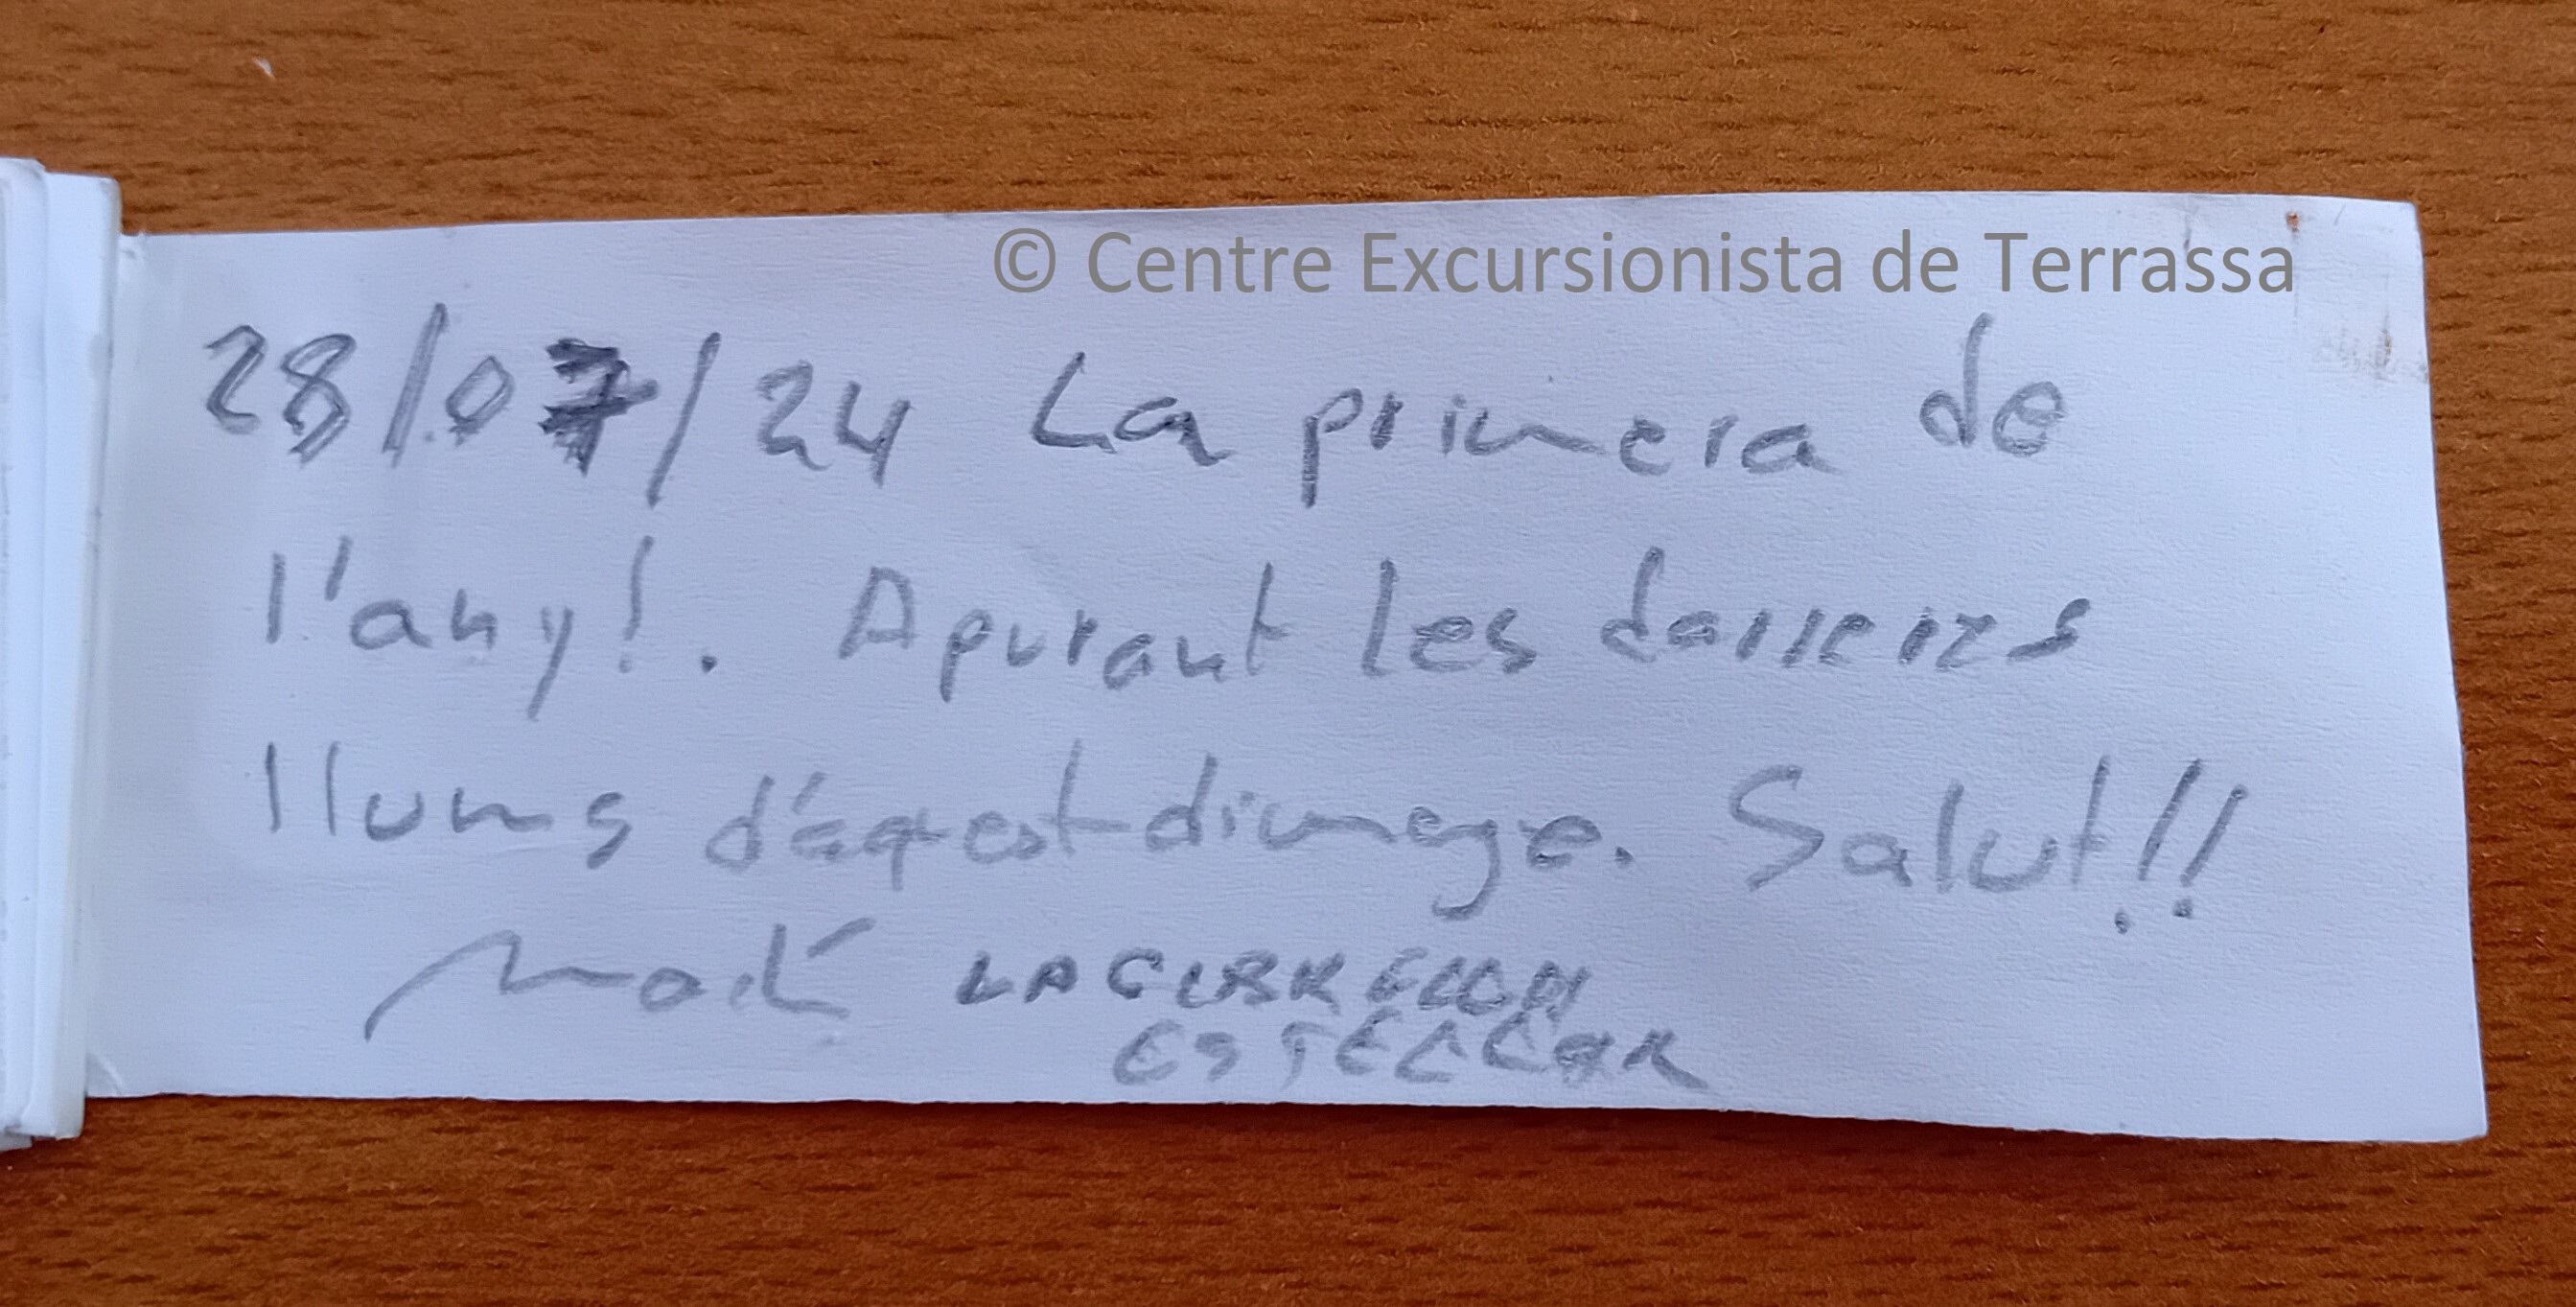 © Centre Excursionista de Terrassa
28/07/24 La primera de
l'any!. Apurant les darreres
llums d'aquest diumenge. Salut!!